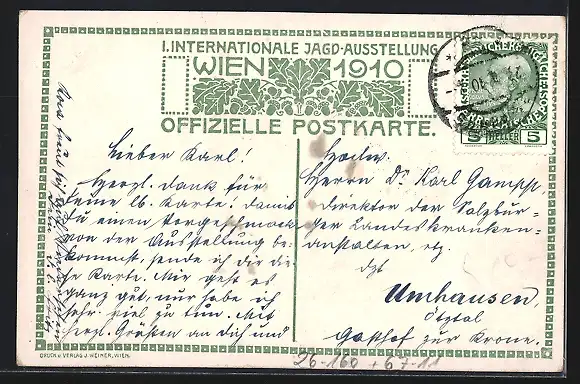 I. INTERNATIONALE JAGD-AUSSTELLUNG
WIEN 1910
OFFIZIELLE POSTKARTE.
5 HELLER 5
Lieber Karl!
Herzl. Dank für
Deine lb. Karte! Damit
Du einen Vorgeschmack
von der Ausstellung be-
kommst, sende ich Dir die-
se Karte. Mir geht es
ganz gut, nur habe ich
sehr viel zu tun. Mit
herzl. Grüßen an Dich und
Hochw.
Herrn Dr. Karl Gampp,
Direktor der Salzbur-
ger Landeskranken-
anstalten, etz.
dzt
Umhausen,
Ötztal
Gasthof zur Krone.
DRUCK U. VERLAG J. WEINER, WIEN.
26-160 + 67-11